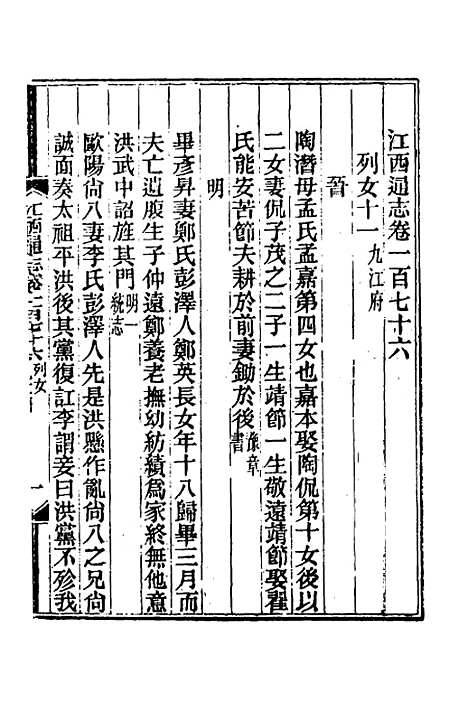 江西通志卷一百七十六
列女十一九江府
晉
陶潛母孟氏孟嘉第四女也嘉本娶陶侃第十女後以
二女妻侃子茂之二子一生靖節一生敬遠靖節娶翟
氏能安苦節夫耕於前妻鋤於後豫章書
明
畢彥昇妻鄭氏彭澤人鄭英長女年十八歸畢三月而
夫亡遺腹生子仲遠鄭養老撫幼紡績爲家終無他意
洪武中詔旌其門明一統志
歐陽尙八妻李氏彭澤人先是洪懸作亂尙八之兄尙
誠面奏太祖平洪後其黨復訌李謂妾曰洪黨不殄我
江西通志卷一百七十六列女
一